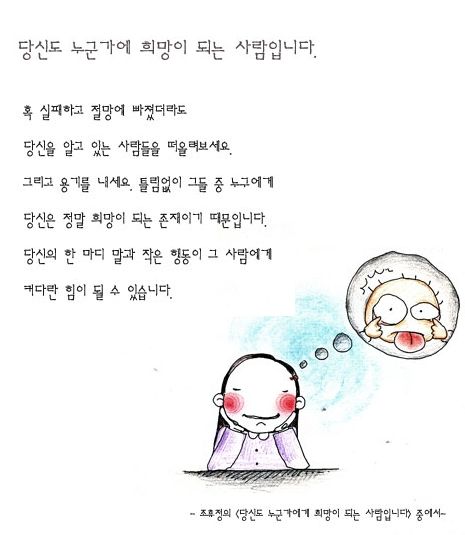 당신도 누군가에 희망이 되는 사람입니다.
혹 실패하고 절망에 빠졌더라도
당신을 알고 있는 사람들을 떠올려보세요.
그리고 용기를 내세요. 틀림없이 그들 중 누구에게
당신은 정말 희망이 되는 존재이기 때문입니다.
당신의 한 마디 말과 작은 행동이 그 사람에게
커다란 힘이 될 수 있습니다.
- 조호정의 <당신도 누군가에게 희망이 되는 사람입니다> 중에서~